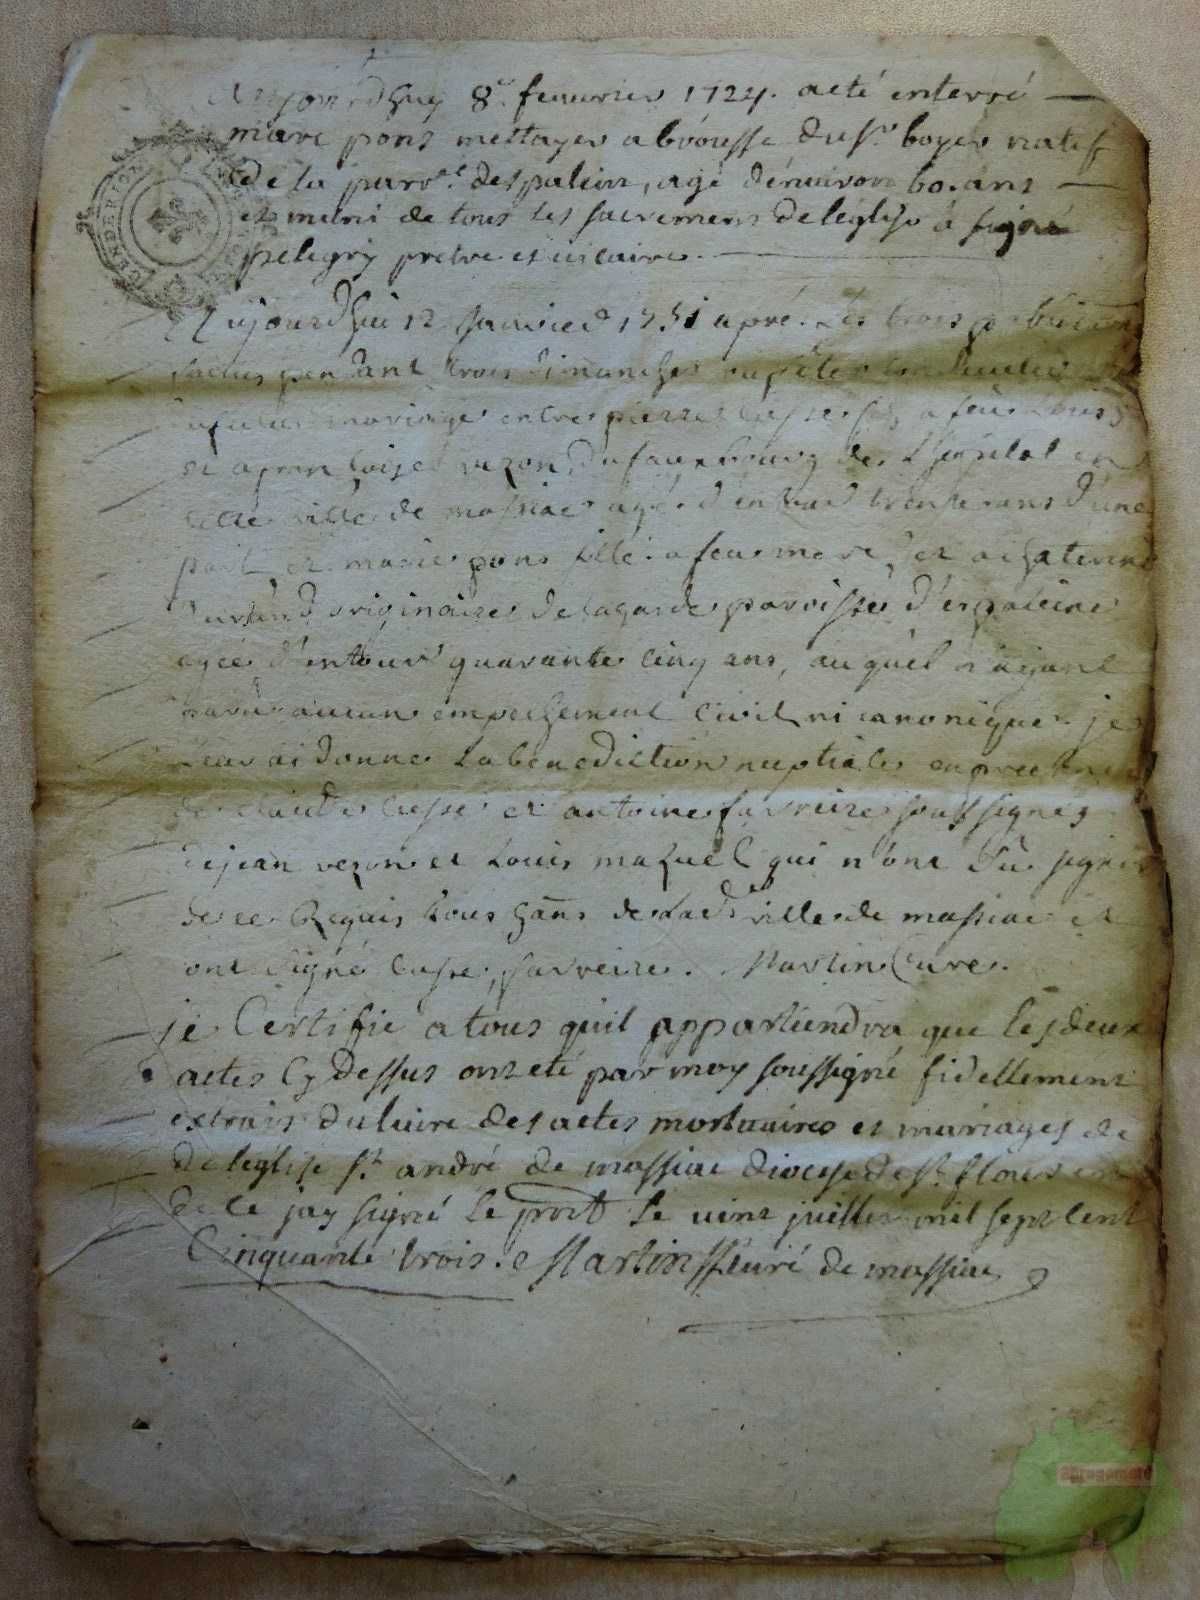 Aujourdhuy 8e. feuvrier 1724. aeté enterré
marc pons mettayer abrousse du sr. boyer natif
de la parse. despalein, agé denuiron 60. ans
et muni de tous les sacremens deleglise a signé
pelegry pretre et uicaire.
Aujourd'hui 12 janvied 1751 apré. Les trois publications
faites pendant trois Dimanches
mariage entre pierre Cusse fils a feu Louis
et a francoise vezon, du fauxbourg de Lhopital en
cette ville de massiac agé d'entour trente ans d'une
part et marie pons fille a feu marc, et a Caterine
Durand originaire de lagarde paroisse d'espaleine
agée d'entour quarante cinq ans, auquel n'ayant
paru aucun empechement Civil ni canonique je
Leur ai donné La benediction nuptiale en presence
de Claude Cusse et antoine favreire soussignés
de jean vezon et Louis mazuel qui n'ont sû signer
de ce Requis tous hans de Lade ville de massiac et
ont signé Cusse, favreire. Martin Cure.
je Certifie a tous quil appartiendra que les deux
actes Cy dessus onteté par moy soussigné fidellement
extrais du liure des actes mortuaires et mariages de
de leglise st. andré de massiac diocese de st. flour en
de ce jay signé le prnt le uint juillet mil sept cent
Cinquante trois. Martin Curé de massiac
GENDERION